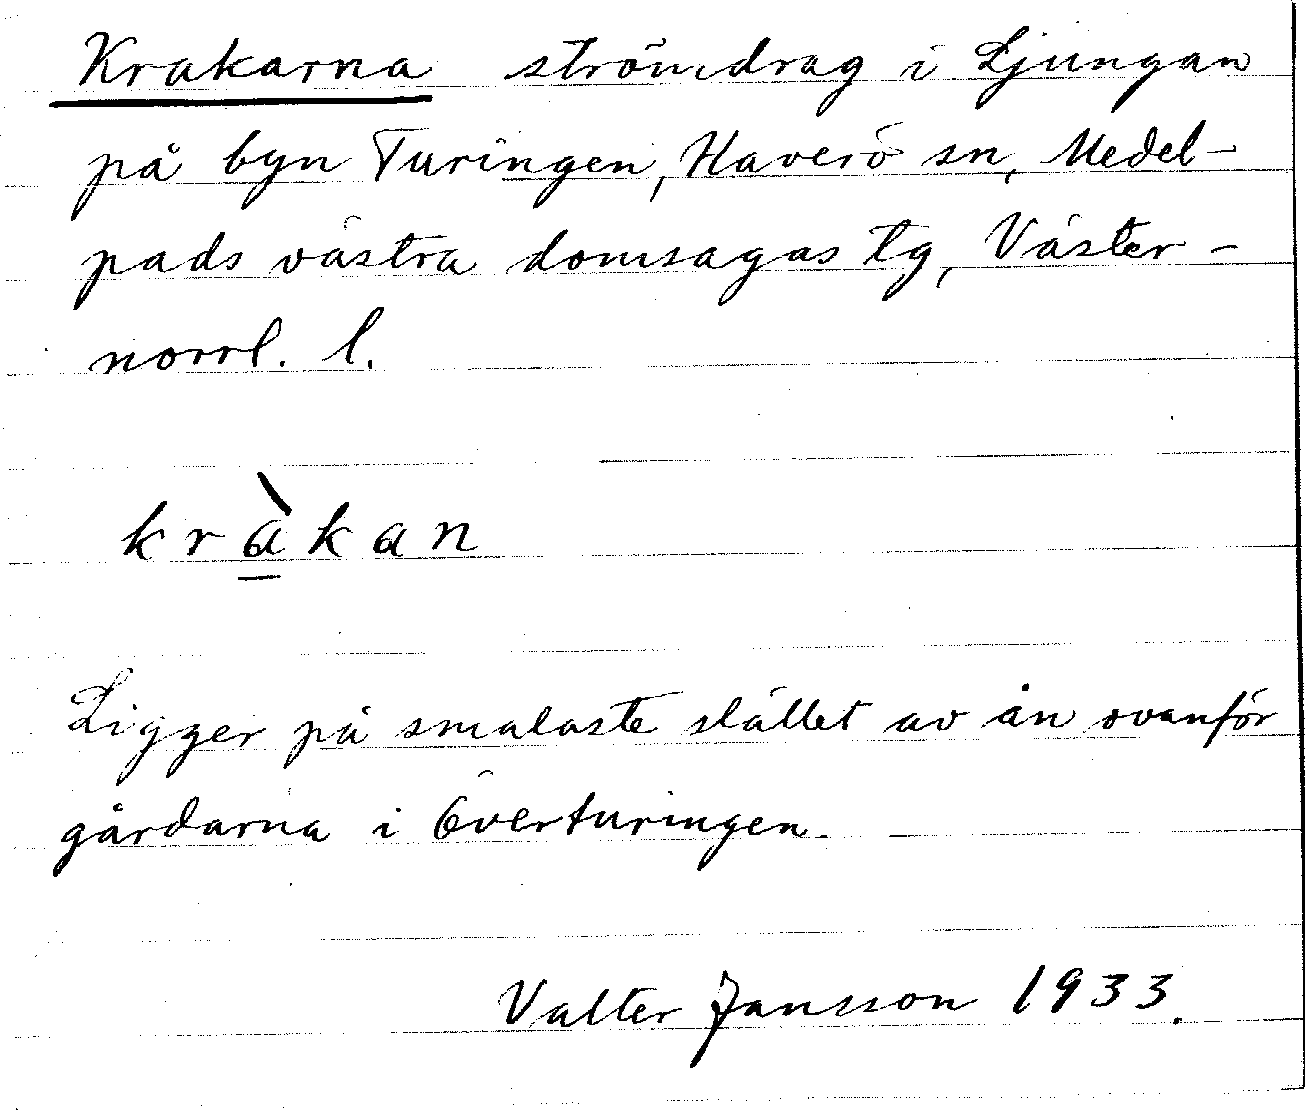 Krakarna strömdrag i Ljungan
på byn Turingen, Haverö sn, Medel-
pads västra domsagas tg, Väster-
norrl. l.
kràkan
Ligger på smalaste stället av ån ovanför
gårdarna i Överturingen.
Valter Jansson 1933.